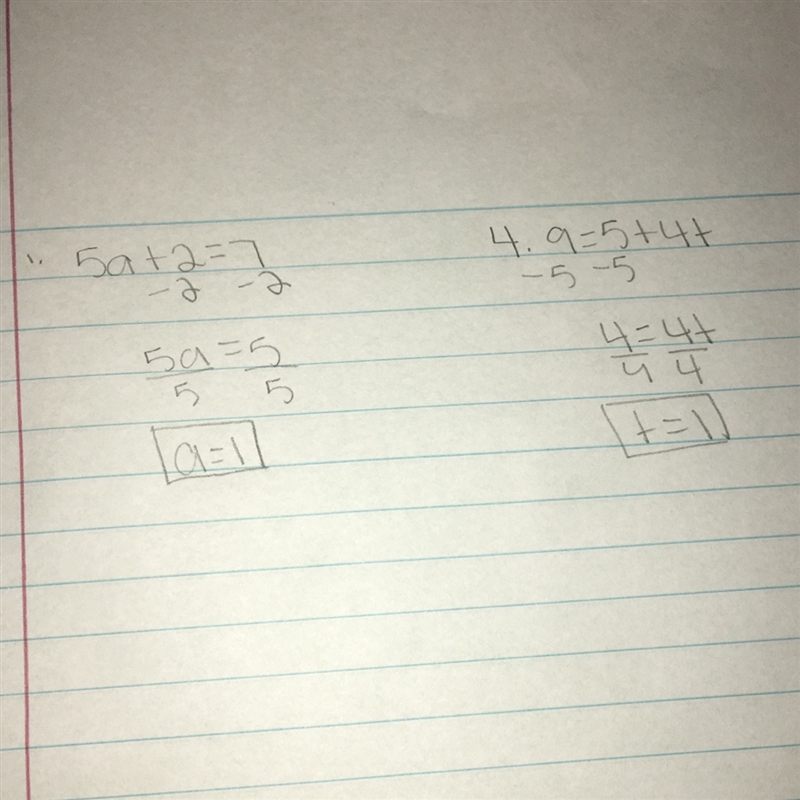 1. 5a+2=7
-2 -2
5a=5
5 5
a=1
4. 9=5+4t
-5 -5
4=4t
4 4
t=1